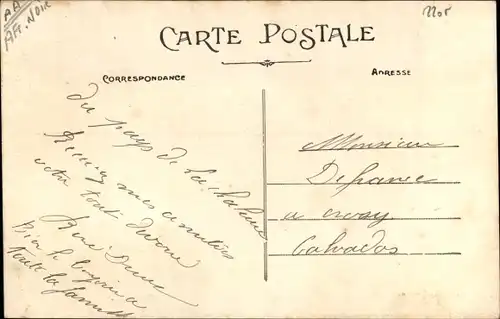 AA
AF. NOIR
2205
CARTE POSTALE
CORRESPONDANCE
ADRESSE
du pays de la chaleur
Recevez mes amitiés
votre tout dévoué
René
Bien le bonjour à
toute la famille
Monsieur
Defrance
a
Calvados